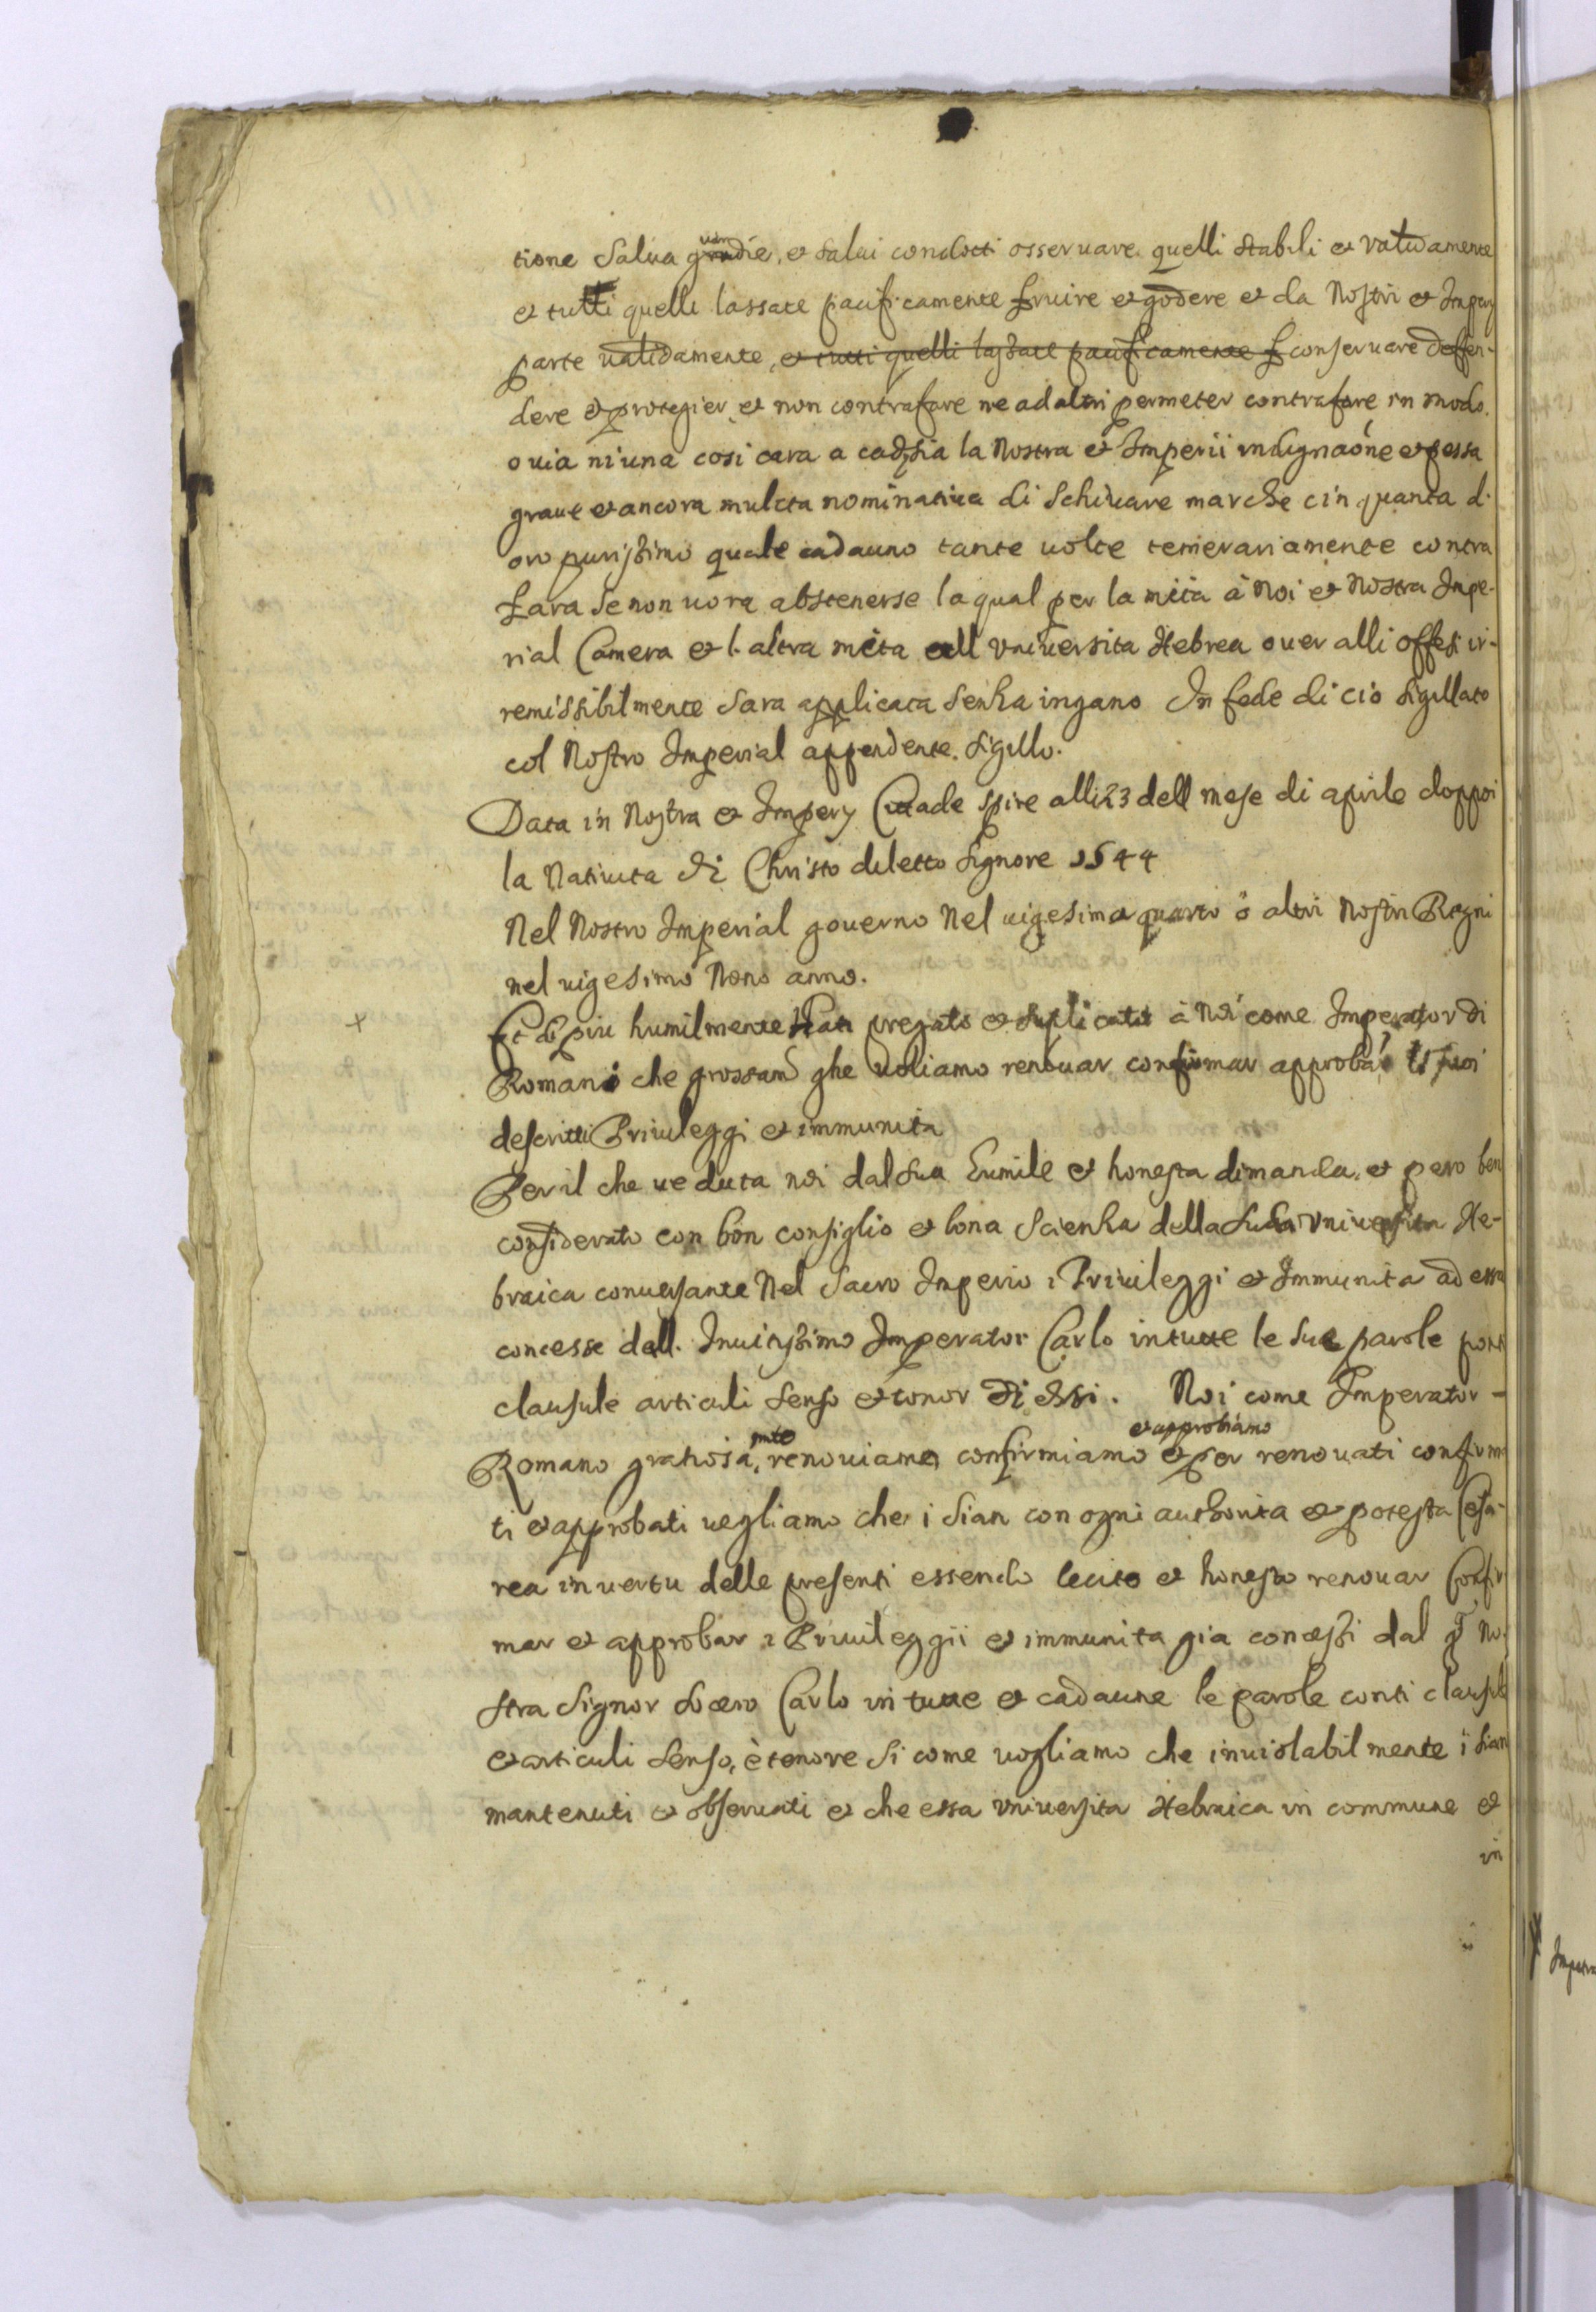 tione Salva guardie, et salui condotti osservare quelli stabili et validamente
et tutti quelli lassate pacificamente fruire et godere et da Nostri et Impery
parte validamente, et tutti quelli lassate pacificamente f conservare deffen-
dere et protegier et non contrafare ne ad altri permeter contrafare in modo
o via niuna cosi cara a cad. sia la Nostra et Imperii indignaone et pessa
graue et ancora mulcta nominatiua di Schiuare marche cinquanta d.
oro purissimo quale cadauno tante uolte temerariamente contra
fara se non uora abstenerse la qual per la mita à Noi et Nostra Impe-
rial Camera et l. altra mita all Vniversita Hebrea ouer alli offesi ir-
remissibilmente sara applicata senha ingano In fede di cio sigillato
col Nostro Imperial appendente. sigillo.
Data in Nostra et Impery Citade Spire alli 23 dell mese di aprile doppoi
la Natiuita di Christo diletto Signore 1544
Nel Nostro Imperial gouerno Nel uigesimo quarto ò altri Nostri Regni
nel uigesimo Nono anno.
Et di piu humilmente pregato et suplicato à Noi come Imperator di
Romani che ghe voliamo renouar confirmar approbar
descritti Priuileggi et immunita
Per il che ueduta noi dal sua humile et honesta dimanda, et pero ben
considerato con bon consiglio et bona Scienha della Vniversita He-
braica conuersante Nel Sacro Imperio i Priuileggi et Immunita ad essa
concesse dall. Inuitissimo Imperator Carlo in tutte le sue parole ponti
clausule articuli senso et tonor di essi. Noi come Imperator-
et approbiamo
Romano gratiosamte renouiamo confirmiamo et per renouati confirma
ti et approbati uogliamo che i sian con ogni authorita et potesta Cesa-
rea in uertu delle presenti essendo lecito et honesto renouar Confir
mar et approbar i Priuileggii et immunita gia concessi dal No.
stra Signor Socero Carlo in tutte et cadaune le parole conti clausule
et articuli senso, è tenore si come uogliamo che inuiolabilmente i sian
mantenuti et observati et che essa Vniversita Hebraica in commune et
in